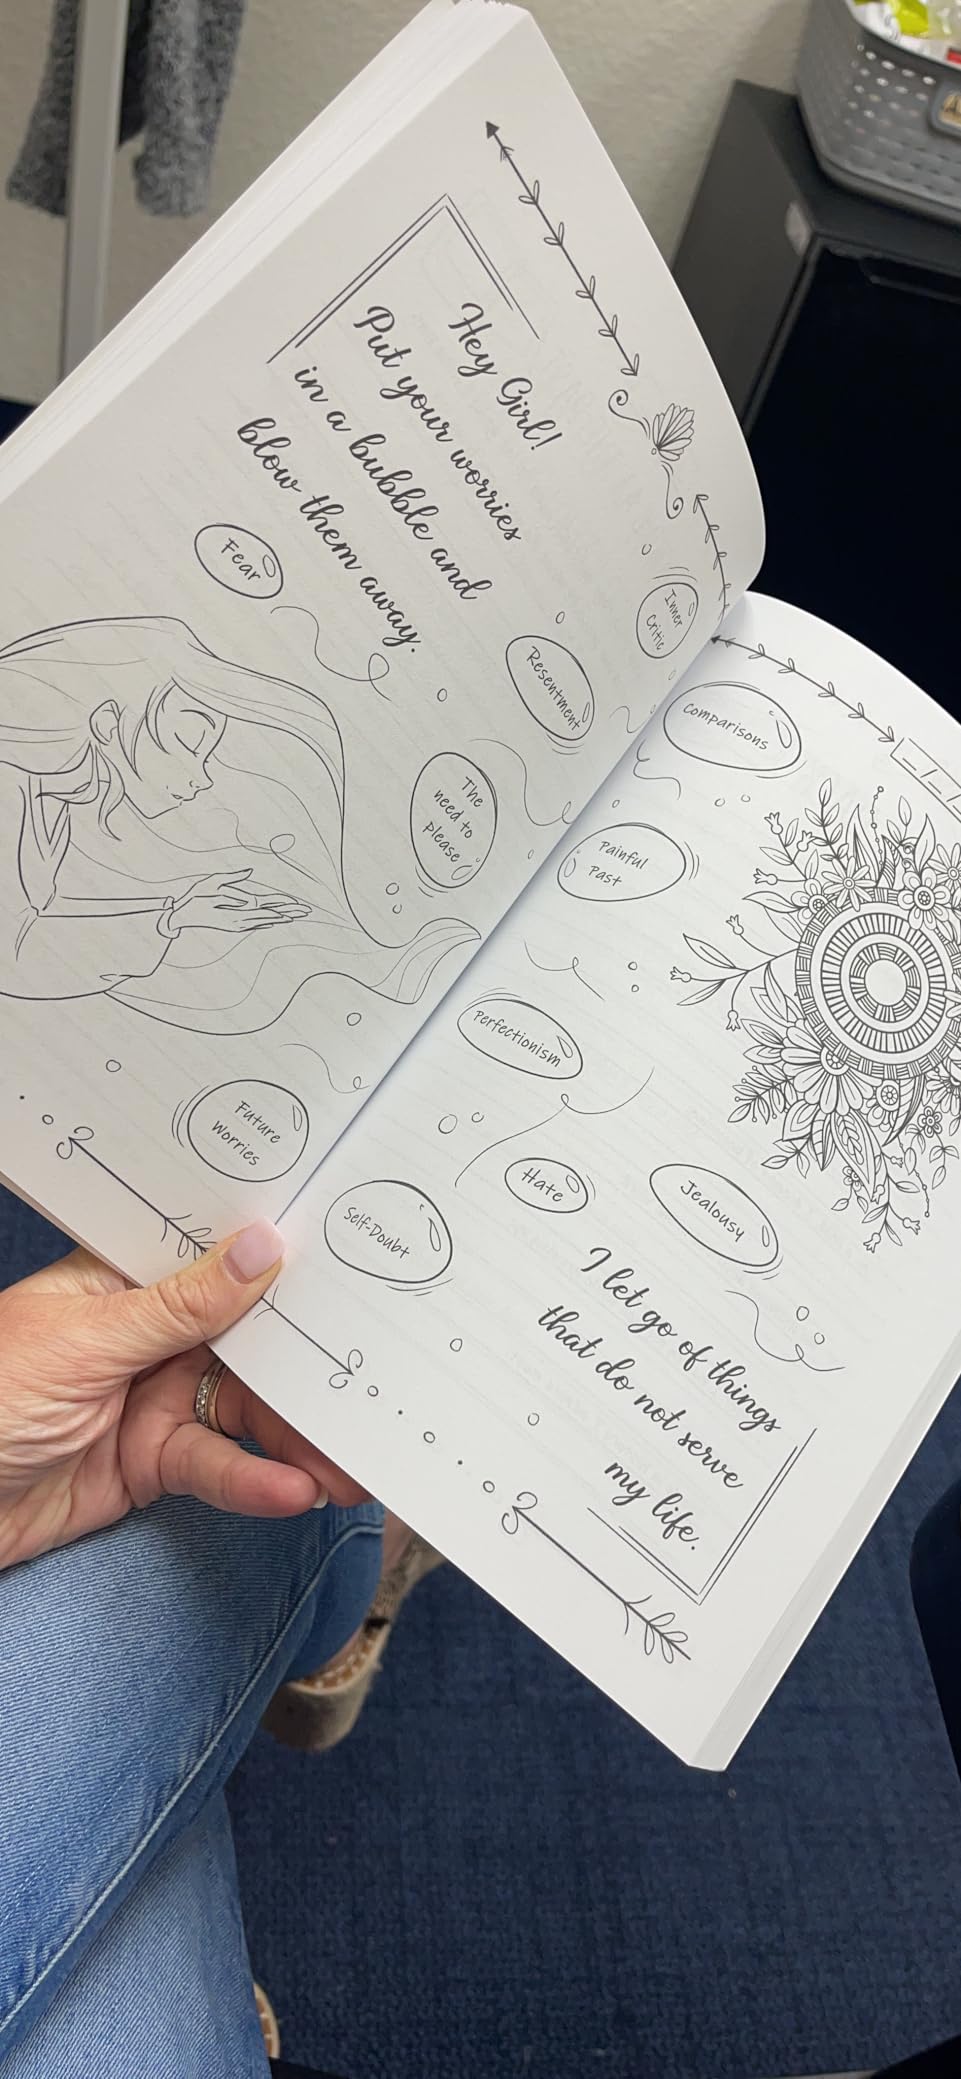 Hey Girl!
Put your worries
in a bubble and
blow them away.
Fear
Inner
Critic
Resentment
The
need to
please
Future
Worries
Comparisons
Painful
Past
Perfectionism
Hate
Jealousy
Self-Doubt
I let go of things
that do not serve
my life.